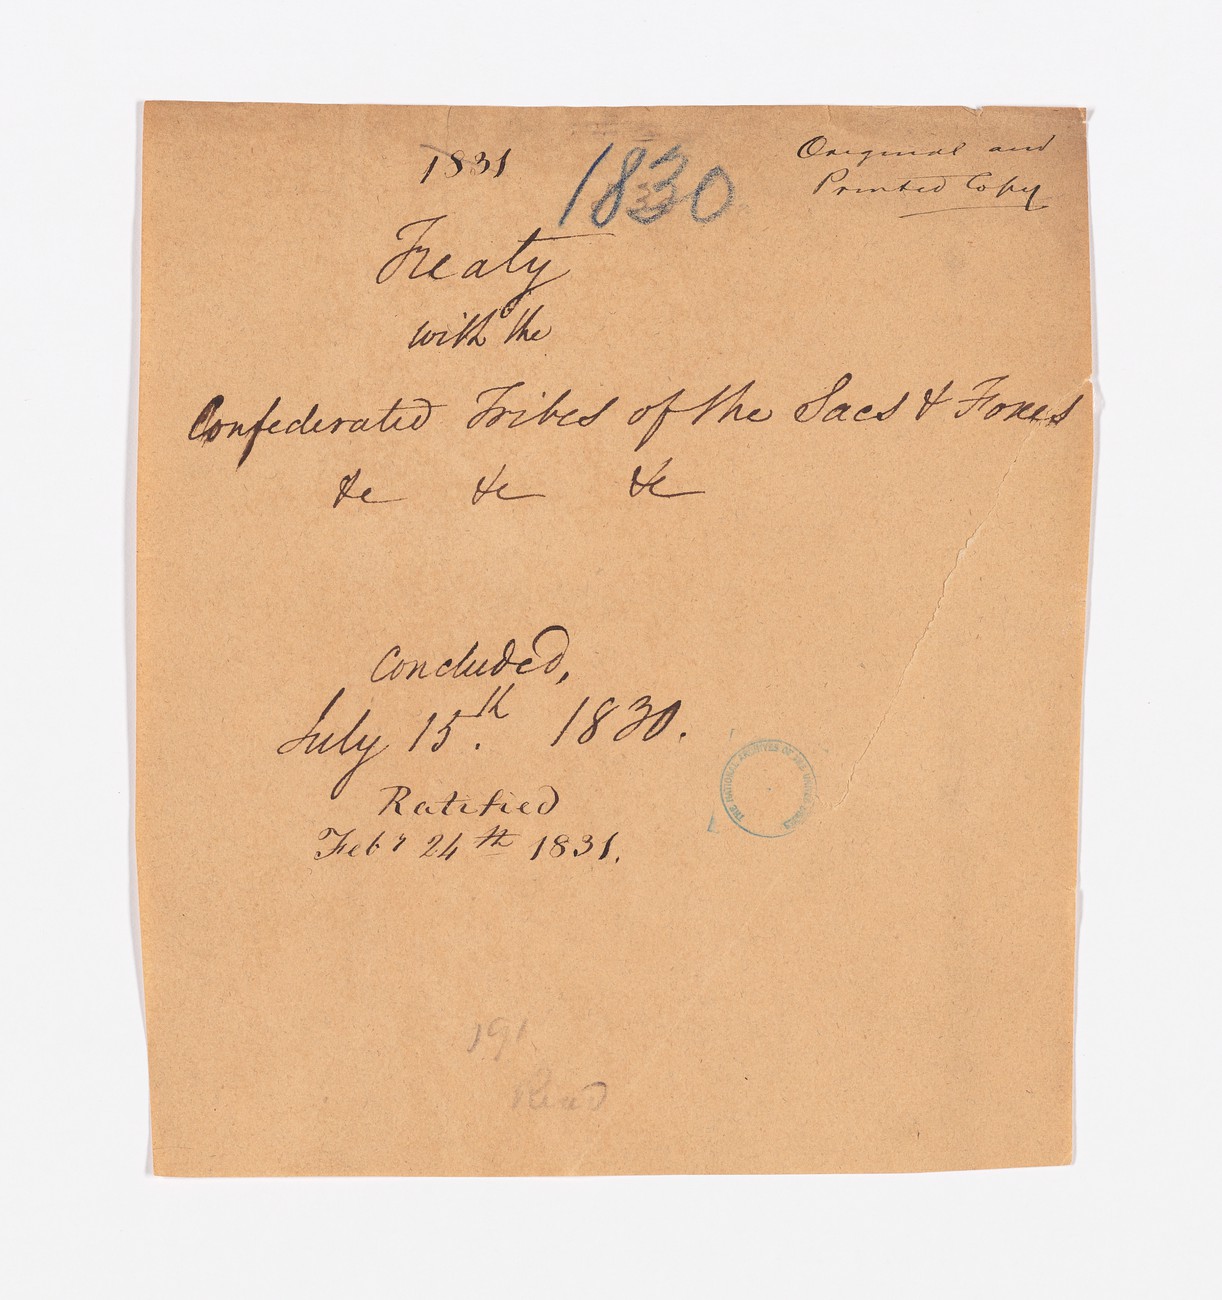 1831
1830
Original and
Printed Copy
Treaty
with the
Confederated Tribes of the Sacs & Foxes
&c &c &c
Concluded,
July 15th. 1830.
Ratified
Feby 24th 1831.
THE NATIONAL ARCHIVES OF THE UNITED STATES
191
Read